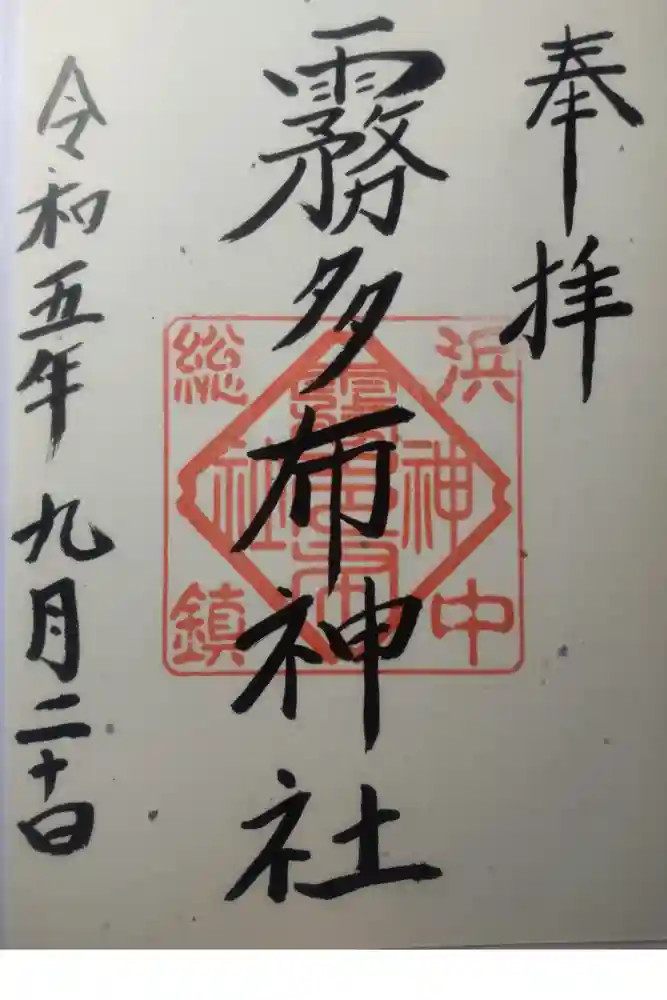 奉拝
霧多布神社
浜中
総鎮
神社
霧多布
令和五年九月二十日